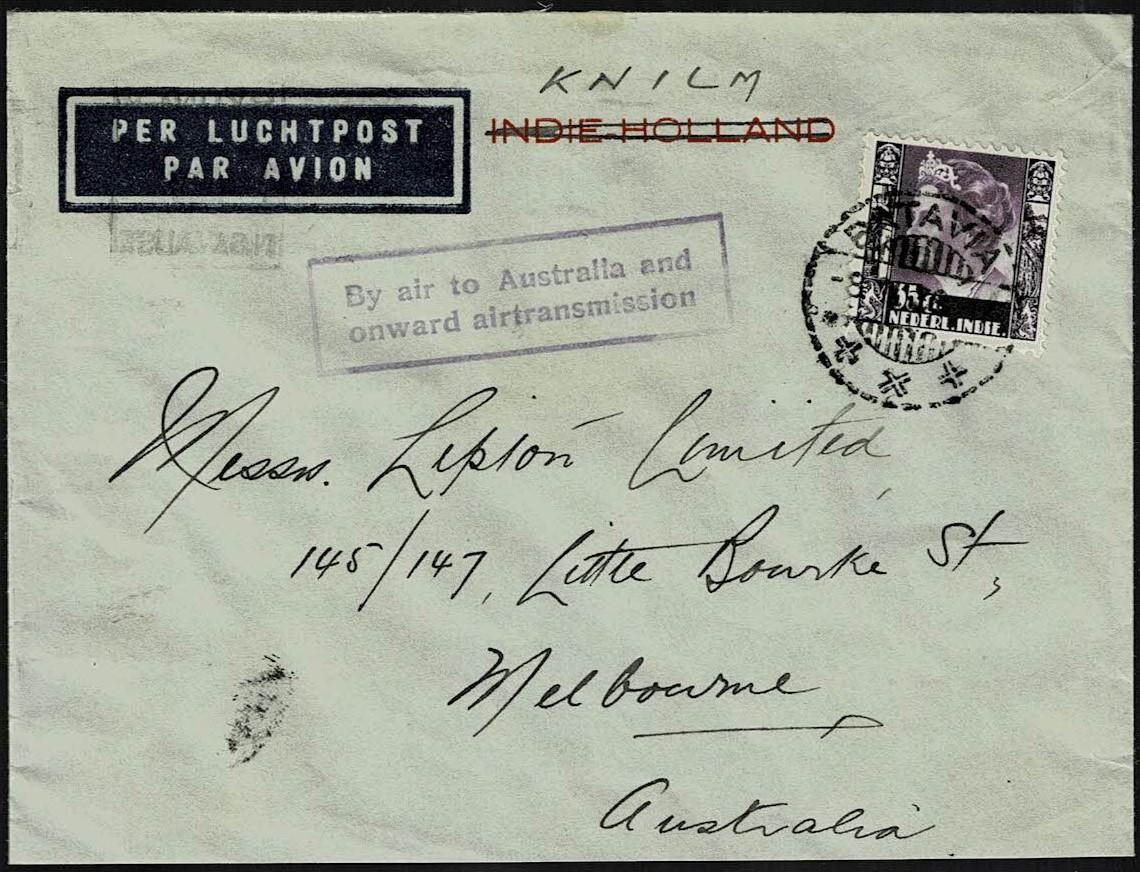 KNILM
PER LUCHTPOST
PAR AVION
INDIE-HOLLAND
By air to Australia and
onward airtransmission
BATAVIA
35 ct.
NEDERL. INDIE.
Messrs. Lipton Limited,
145/147, Little Bourke St,
Melbourne
Australia